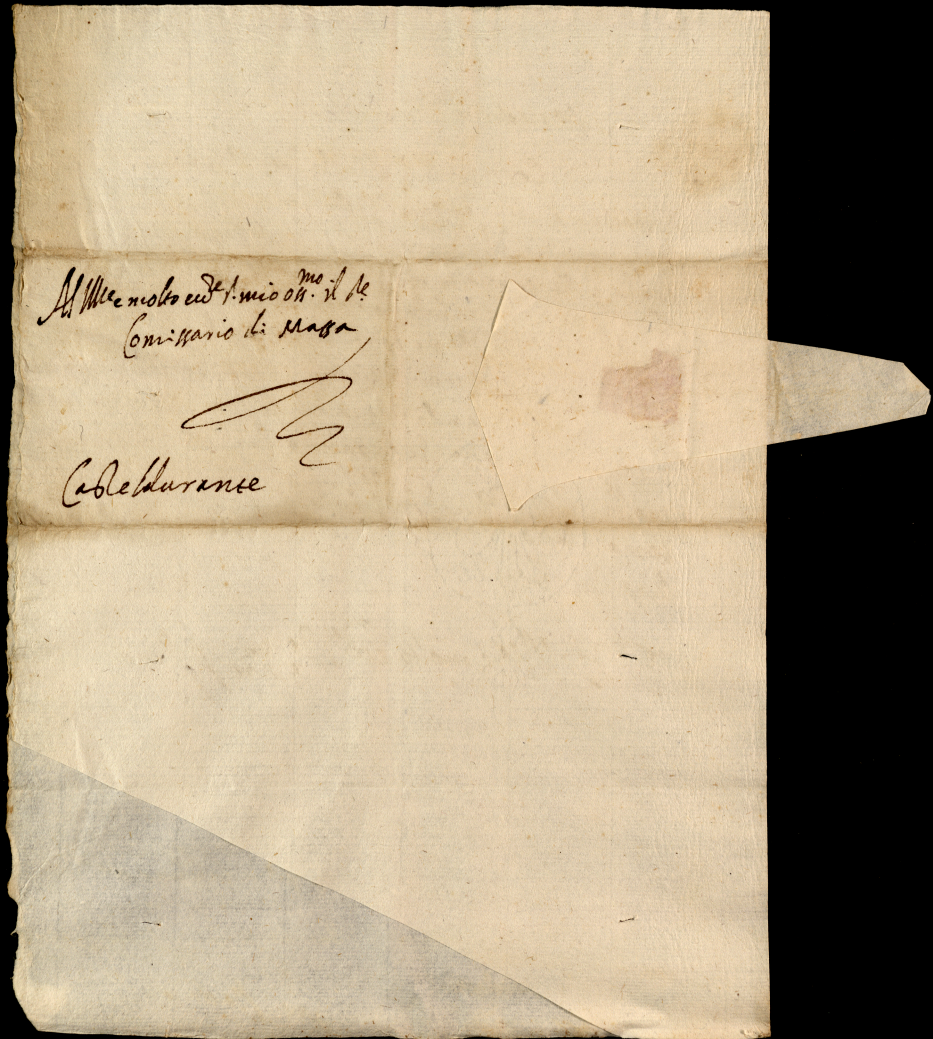 Al Ill.re e molto ecc.te S.r mio oss.mo il S.re
Comissario di Massa
Casteldurante